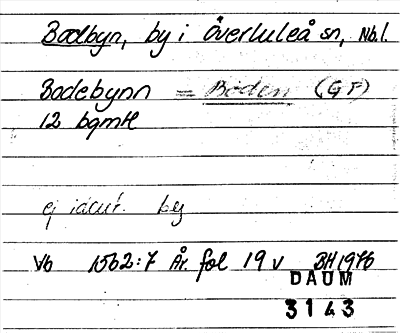 Bodbyn, by i Överluleå sn, Nb.l.
Bodebynn = Boden (GF)
12 bgmtl
ej by
Vb 1562:7 År. fol 19 v BH 1976
DAUM
3143